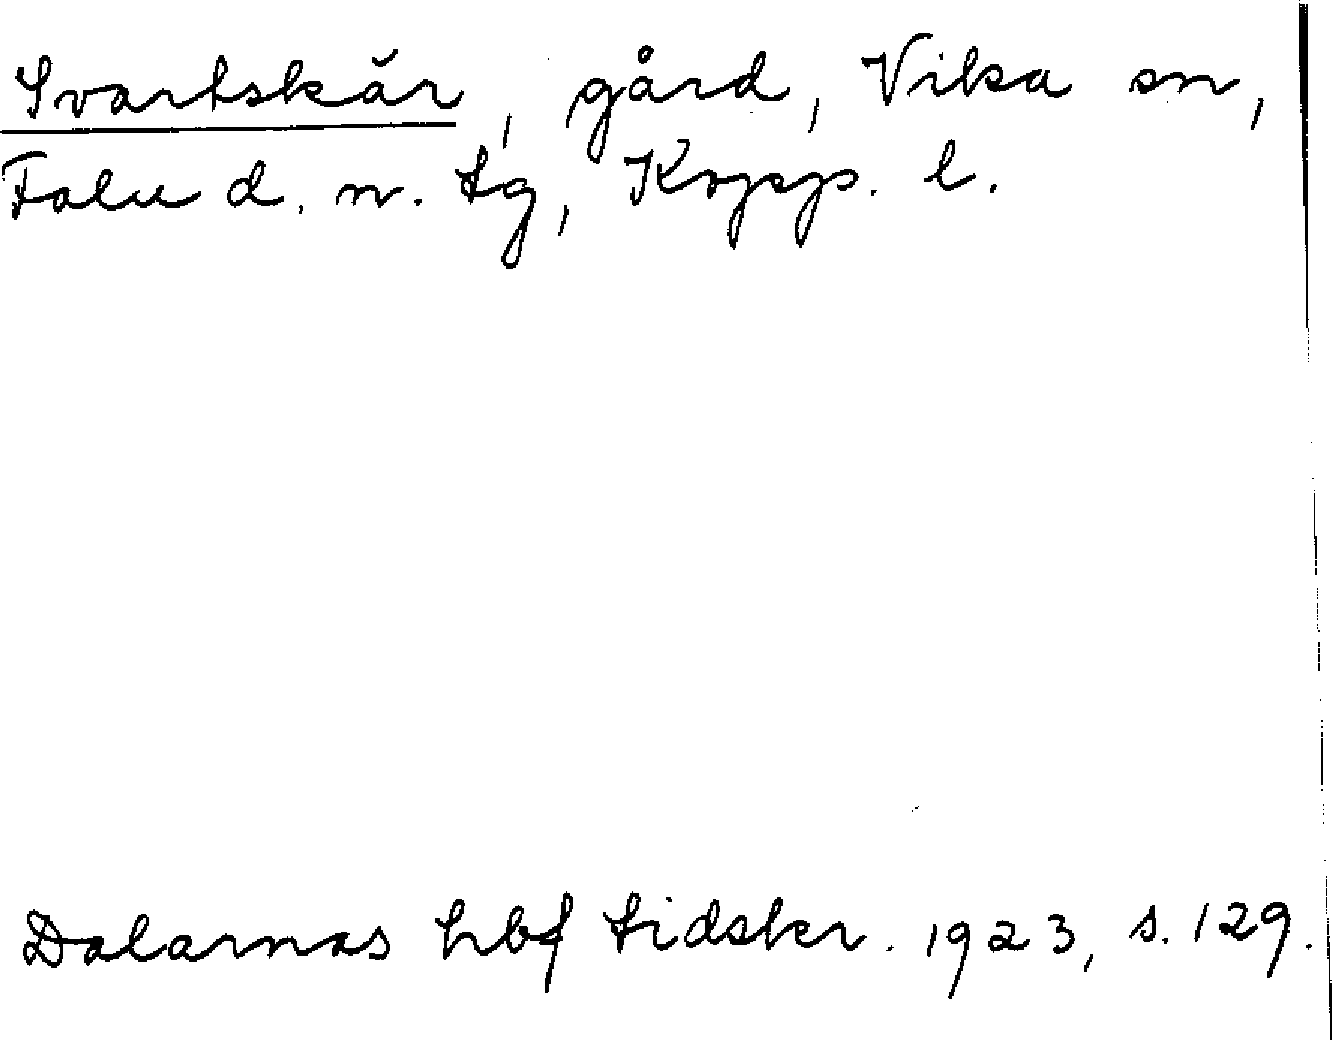 Svartskär, gård, Vika sn,
Falu d. n. tg, Kopp. l.
Dalarnas hbf tidskr. 1923, s. 129.